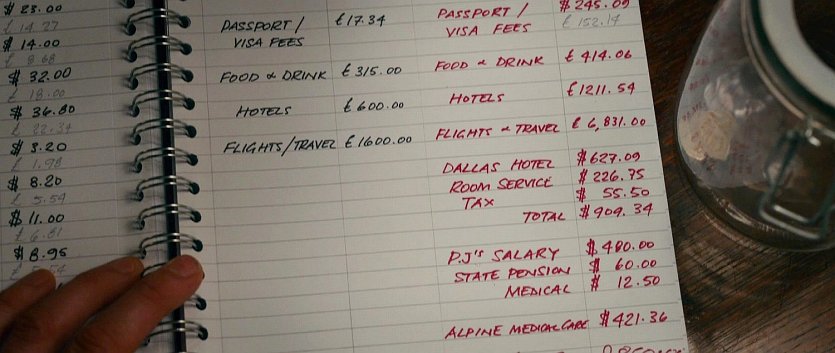 $ 23.00
£ 14.27
$ 14.00
£ 8.68
$ 32.00
£ 18.00
$ 36.80
£ 22.34
$ 3.20
£ 1.98
$ 8.20
£ 5.54
$ 11.00
£ 6.81
$ 8.95
PASSPORT / £17.34
VISA FEES
FOOD & DRINK £315.00
HOTELS £600.00
FLIGHTS/TRAVEL £1600.00
$245.09
PASSPORT / £152.14
VISA FEES
FOOD & DRINK £ 414.06
HOTELS £1211.54
FLIGHTS & TRAVEL £ 6,831.00
DALLAS HOTEL $627.09
ROOM SERVICE $ 226.75
TAX $ 55.50
TOTAL $909.34
P.J'S SALARY $ 400.00
STATE PENSION $ 60.00
MEDICAL $ 12.50
ALPINE MEDICAL CARE $421.36